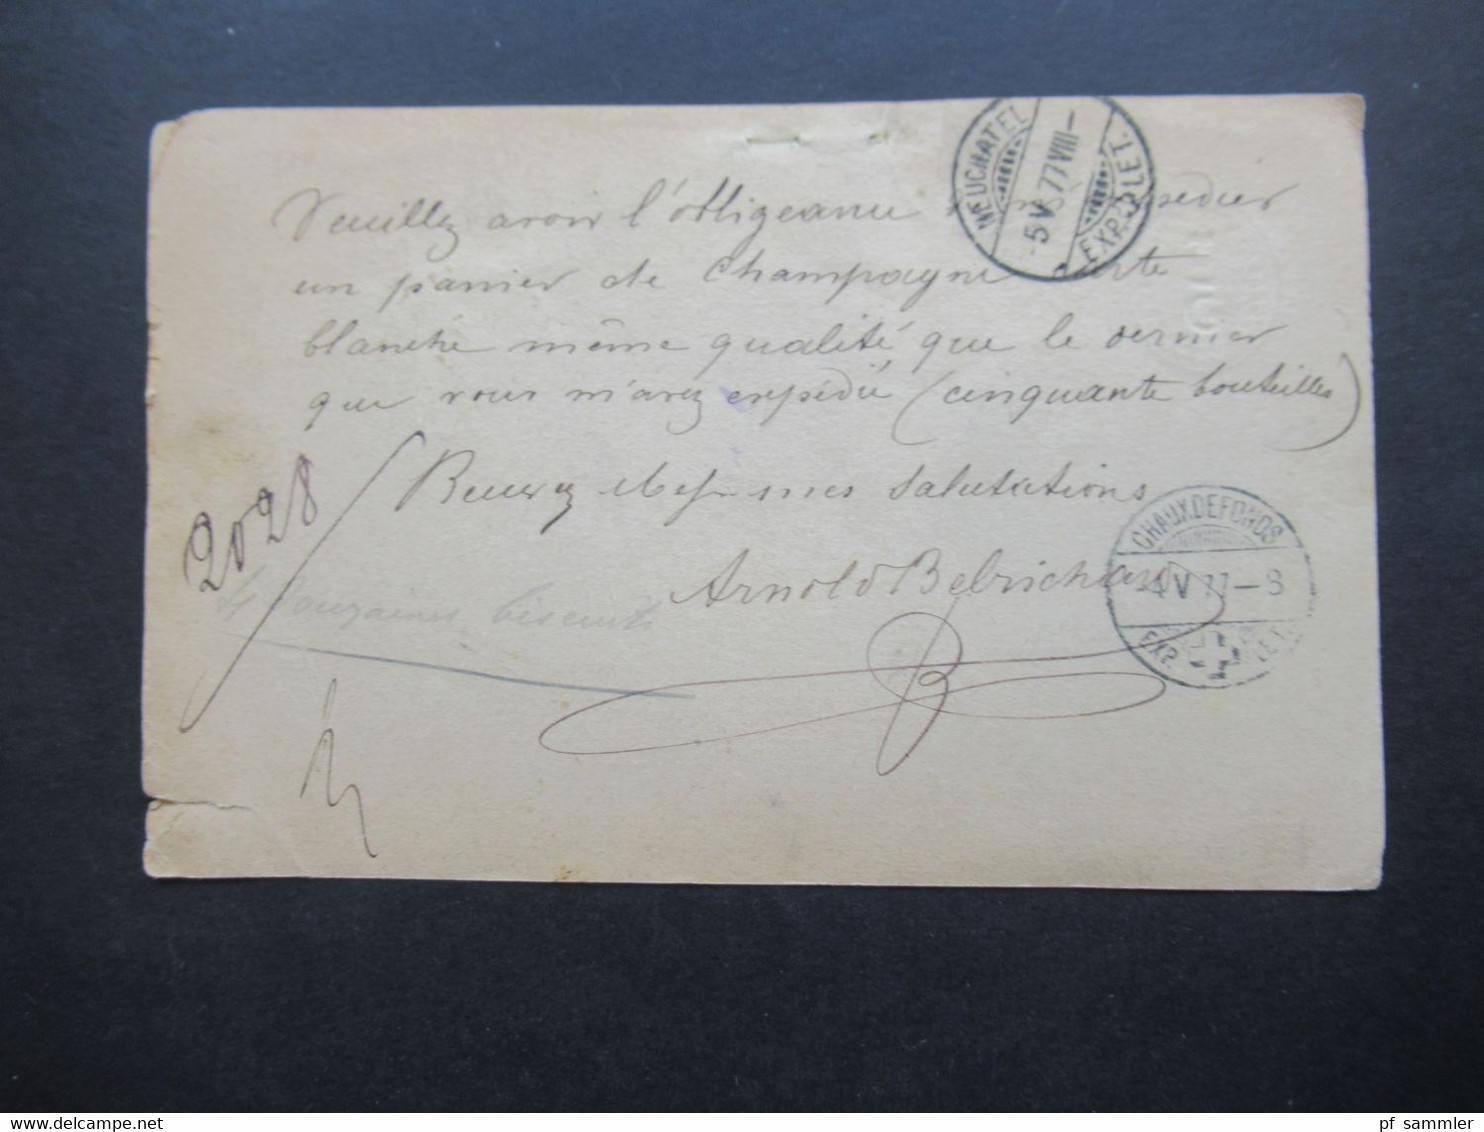 Veuillez avoir l'obligeance expédier
un panier de Champagne carte
blanche même qualité que le dernier
que vous m'avez expédié (cinquante bouteilles)
Recevez mes salutations
Arnold
2028
4 douzaines biscuits
NEUCHATEL
5 V 77 VIII –
EXP. LET.
CHAUXDEFONDS
4 V 77 – 8
EXP. LET.
pf_sammler
www.delcampe.net